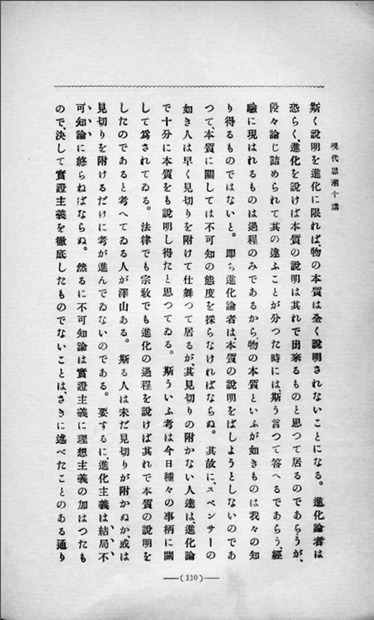 現代思潮十講
斯く說明を進化に限れば、物の本質は全く說明されないことになる。進化論者は
恐らく、進化を說けば本質の說明は其れで出來るものと思つて居るのであらうが、
段々論じ詰められて其の違ふことが分つた時には、斯う言つて答へるであらう、經
驗に現はれるものは過程のみであるから、物の本質といふが如きものは我々の知
り得るものではないと。卽ち進化論者は本質の說明をばしようとしないのであ
つて、本質に關しては不可知の態度を採らなければならぬ。其故に、スペンサーの
如き人は早く見切りを附けて仕舞つて居るが、其見切りの附かない人達は、進化論
で十分に本質をも說明し得たと思つてゐる。斯ういふ考は今日種々の事柄に關
して爲されてゐる。法律でも宗敎でも進化の過程を說けば其れで本質の說明を
したのであると考へてゐる人が澤山ある。斯る人は未だ見切りが附かぬか、或は
見切りを附けるだけに考が進んでゐないのである。要するに、進化主義は結局不
可知論に終らねばならぬ。然るに不可知論は實證主義に理想主義の加はつたも
ので、決して實證主義を徹底したものでないことは、さきに述べたことのある通り
(110)